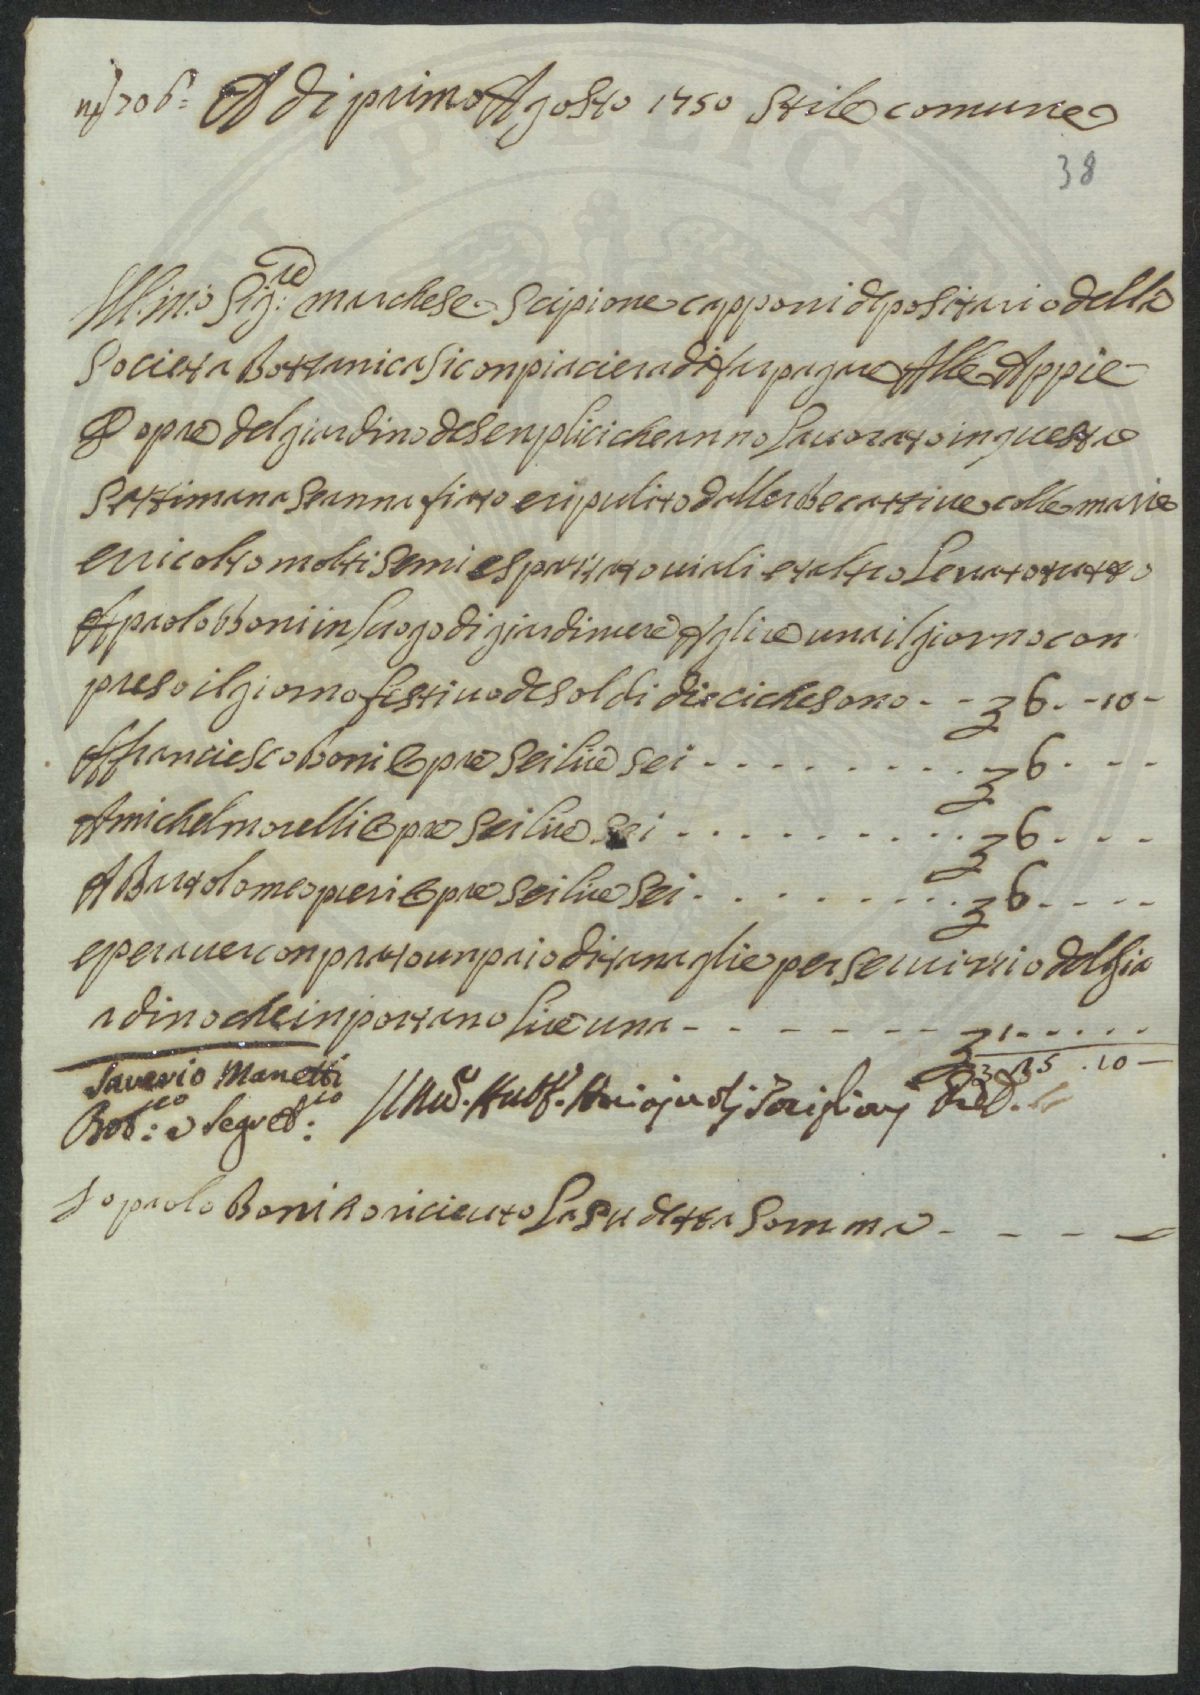 A di primo Agosto 1750 Stile comune
38
Ill:mo Sig:re marchese Scipione capponi depositario della
Societa Bottanica Si conpiaciera di far pagare Alle Appie
opre del giardino de Senplici che anno Lavorato in questa
Settimana Se annafiato e ripulito dallerbe cattive colle marie
e ricolto molti Semi e spazzato viali e taltro Levato tutto
A paolo boni in luogo di giardiniere A lire una il giorno con
preso il giorno festivo de soldi dieci che sono - - 6 - 10 -
A franciesco boni Opre Sei lire sei - - - 6 - - -
A michel morelli Opre Sei lire Sei - - - 6 - - -
A Bartolomeo pieri Opre Sei lire Sei - - - 6 - - -
e per aver conprato un paio di tanaglie per servizzio del Gia
rdino che inportano lire una - - - 1 - - -
25 . 10 —
Saverio Manetti
Bot:co e Segret:rio
Io paolo Boni o riceuto La Su detta Somma - - - -